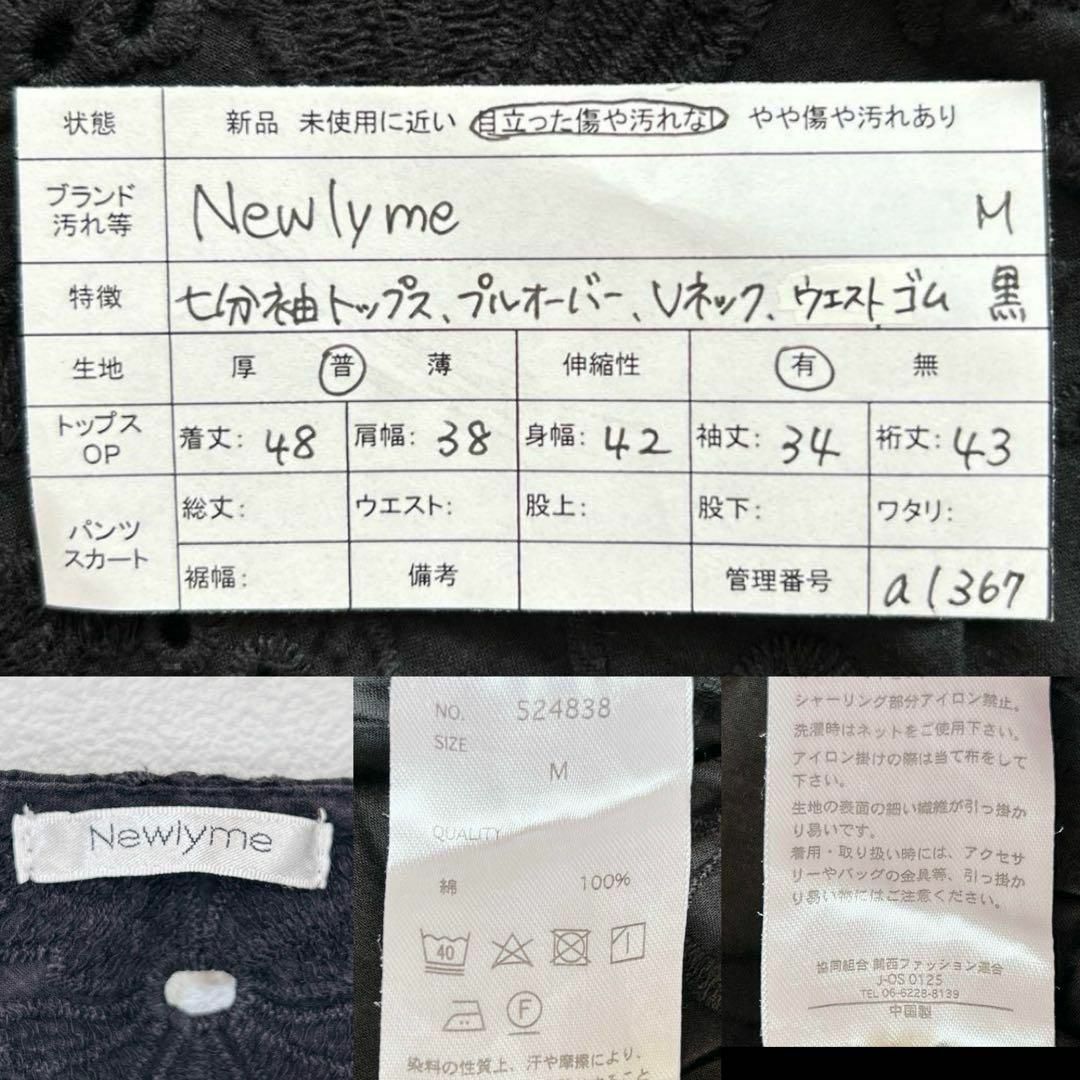 状態 新品 未使用に近い 目立った傷や汚れなし やや傷や汚れあり
ブランド
汚れ等
Newlyme M
特徴 七分袖トップス、プルオーバー、Vネック、ウエストゴム 黒
生地 厚 普 薄 伸縮性 有 無
トップス
OP
着丈: 48 肩幅: 38 身幅: 42 袖丈: 34 裄丈: 43
パンツ
スカート
総丈: ウエスト: 股上: 股下: ワタリ:
裾幅: 備考 管理番号 a1367
Newlyme
NO. 524838
SIZE
M
QUALITY
綿 100%
40
F
染料の性質上、汗や摩擦により、
シャーリング部分アイロン禁止。
洗濯時はネットをご使用下さい。
アイロン掛けの際は当て布をして
下さい。
生地の表面の細い繊維が引っ掛か
り易いです。
着用・取り扱い時には、アクセサ
リーやバッグの金具等、引っ掛か
り易い物にはご注意ください。
協同組合 関西ファッション連合
J-OS 0125
TEL 06-6228-8139
中国製